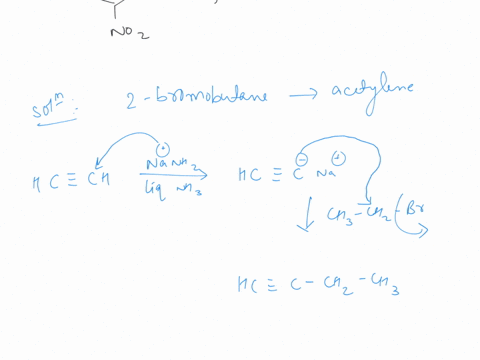 NO2
Solm: 2-bromobutane → acetylene
HC ≡ CH NaNH2 ⊕ liq NH3 → HC ≡ C⊖ Na⊕
↓ CH3-CH2-Br
HC ≡ C - CH2 - CH3